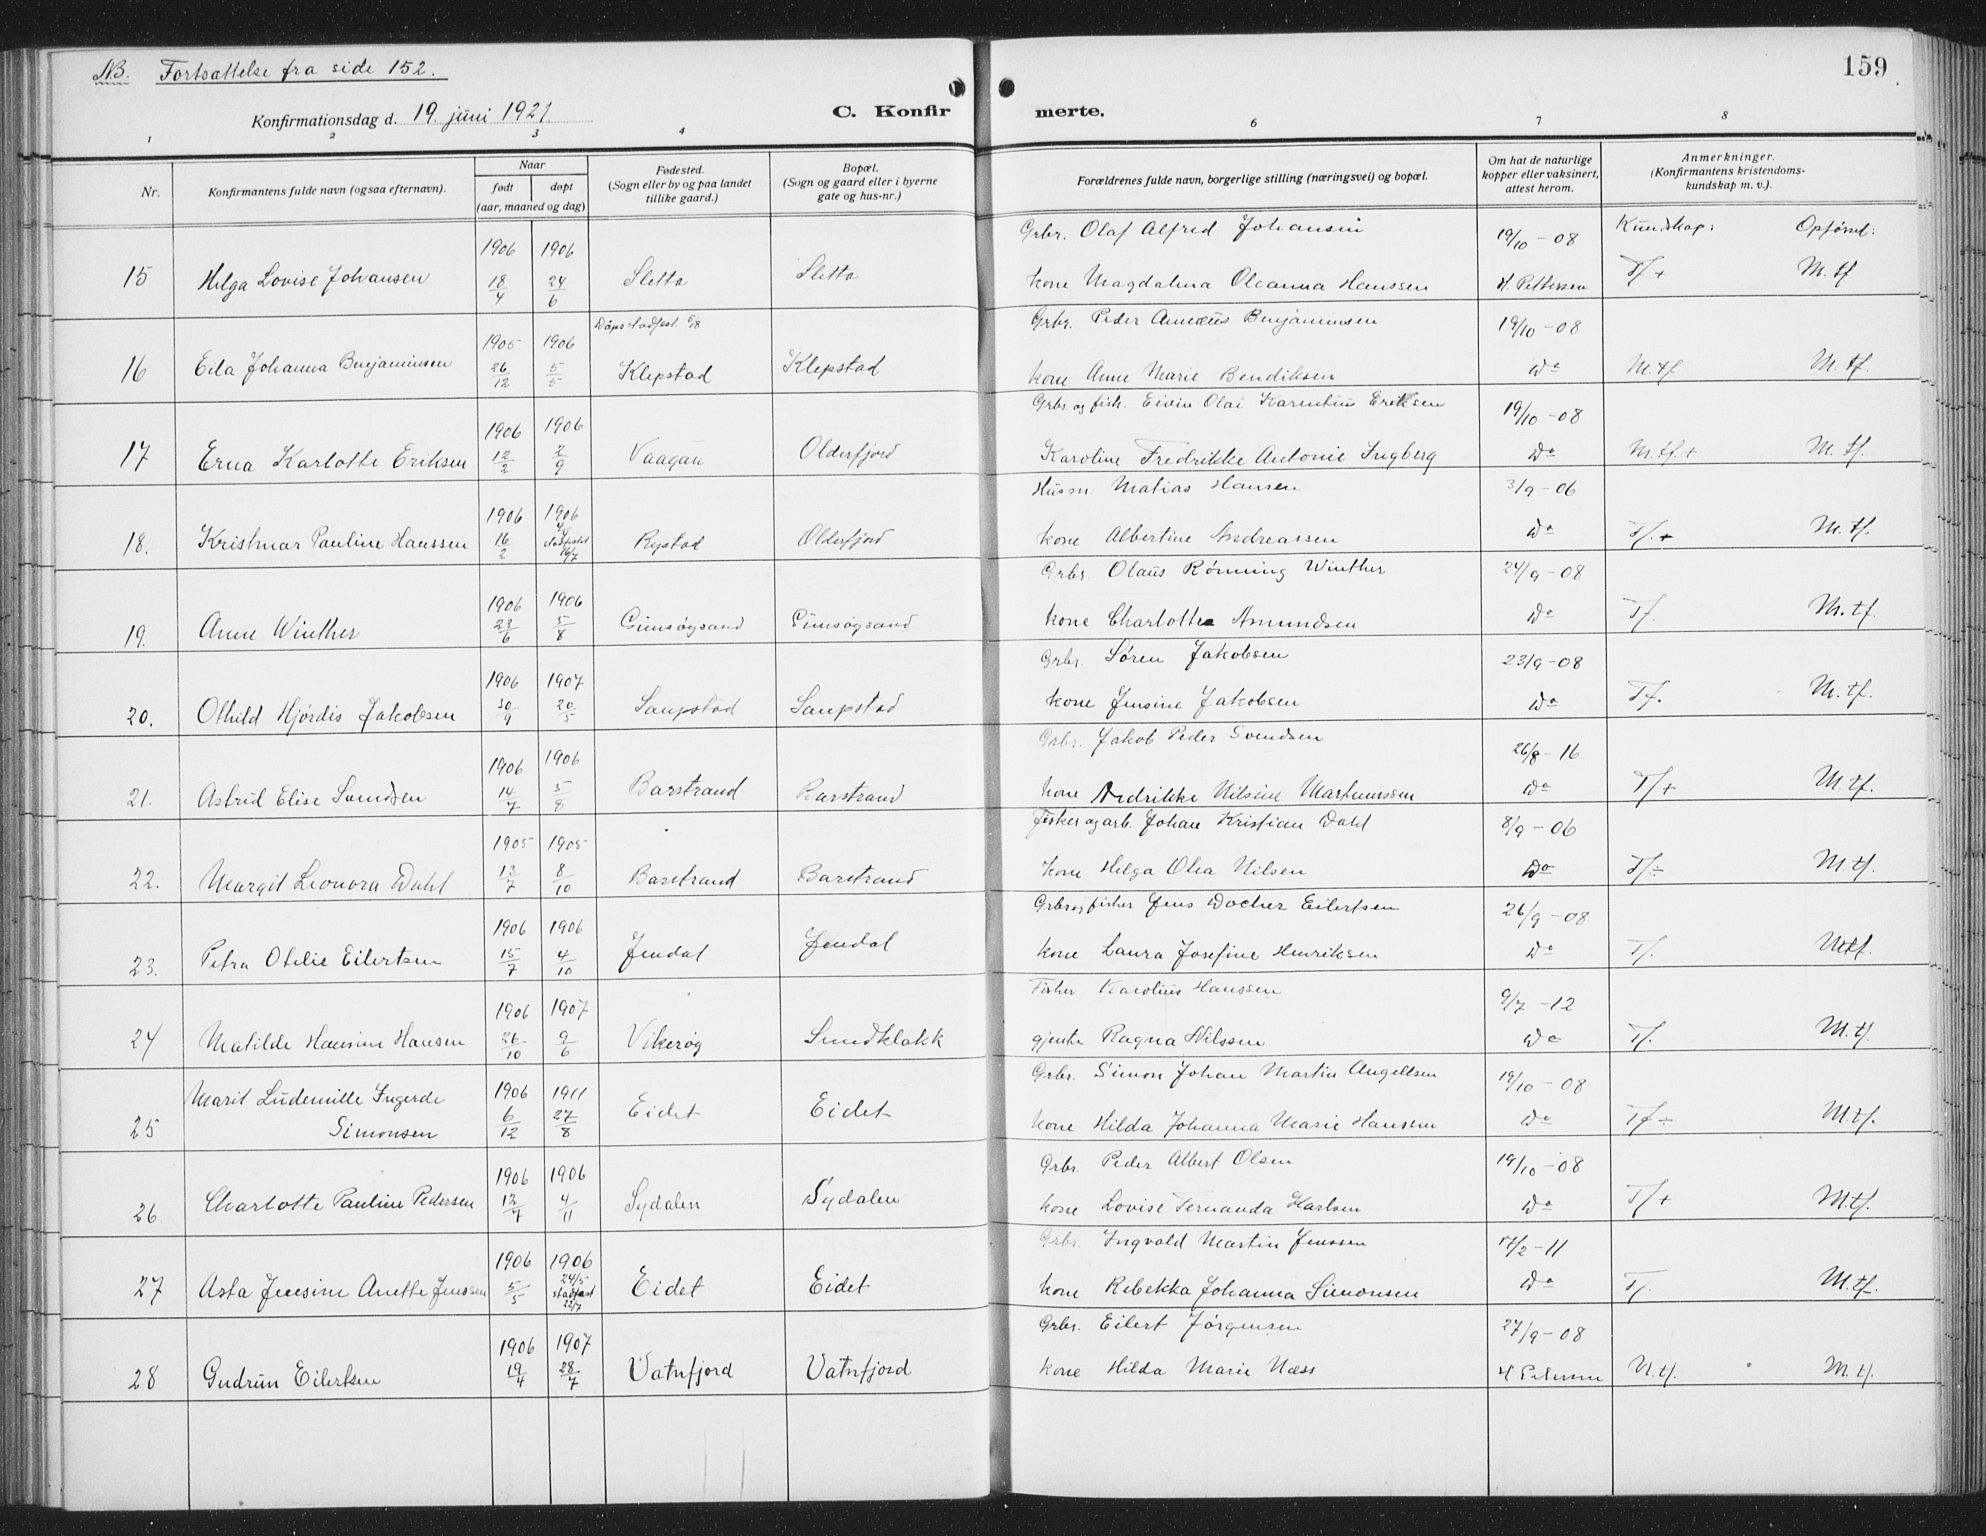 NB. Fortsættelse fra side 152.
159
Konfirmationsdag d. 19. juni 1921.
C. Konfirmerte.
1 2 3 4 6 7 8
Nr.
Konfirmantens fulde navn (ogsaa efternavn).
Naar
født døpt
(aar, maaned og dag)
Fødested.
(Sogn eller by og paa landet
tillike gaard.)
Bopæl.
(Sogn og gaard eller i byerne
gate og hus-nr.)
Forældrenes fulde navn, borgerlige stilling (næringsvei) og bopæl.
Om hat de naturlige
kopper eller vaksinert,
attest herom.
Anmerkninger.
(Konfirmantens kristendoms-
kundskap m. v.).
1906 1906 Grbr. Olaf Alfred Johansen 19/10-08 Kundskap: Opførsel:
15 Helga Lovise Johansen 18/4 24/6 Sletta Sletta kone Magdalena Oleanna Hanssen H. Pettersen Tf + M. tf
1905 1906 Daap stadfest. 5/8 Grbr. Peder Amæus Benjaminsen 19/10-08
16 Eila Johanna Benjaminsen 26/12 5/5 Klepstad Klepstad kone Anne Marie Bendiksen Do M. tf. M. tf.
1906 1906 Grbr og fisk. Eivin Olai Karentius Eriksen 19/10-08
17 Erna Karlotte Eriksen 12/2 2/9 Vaagan Olderfjord Karoline Fredrikke Antonie Ingberg Do M. tf. + M. tf.
1906 1906 Husm. Matias Hansen 3/9-06
18. Kristmar Pauline Hanssen 16/2 stadfestet 16/7 Rystad Olderfjord kone Albertine Andreassen Do Tf. + M. tf.
1906 1906 Grbr. Olaus Rønning Winther 24/9-08
19. Anne Winther 23/6 5/8 Gimsøysand Gimsøysand kone Charlotte Amundsen Do Tf. M. tf.
1906 1907 Grbr. Søren Jakobsen 23/9-08
20. Othild Hjördis Jakobsen 30/9 20/5 Saupstad Saupstad kone Jensine Jakobsen Do Tf. M. tf.
1906 1906 Grbr. Jakob Peder Svendsen 26/8-16
21. Astrid Elise Svendsen 14/7 5/8 Barstrand Barstrand kone Fredrikke Nilsine Martinussen Do Tf + M. tf.
1905 1905 Fisker og arb. Johan Kristian Dahl 8/9-06
22. Margit Leonora Dahl 13/7 8/10 Barstrand Barstrand kone Helga Olea Nilsen Do Tf ÷ M. tf.
1906 1906 Grbr og fisker Jens Docher Eilertsen 26/9-08
23. Petra Otelie Eilertsen 15/7 4/10 Jendal Jendal kone Laura Josefine Henriksen Do Tf. M. tf.
1906 1907 Fisker Karolius Hanssen 9/7-12
24 Matilde Hansine Hansen 26/10 9/6 Vikerøg Sundklakk gjente Ragna Nilssen Do Tf. M. tf.
Marit Ludemille Ingerde 1906 1911 Grbr. Simon Johan Martin Angellsen 19/10-08
25 Simonsen 6/12 27/8 Eidet Eidet kone Hilda Johanna Marie Hanssen Do Tf ÷ M. tf.
1906 1906 Grbr. Peder Albert Olsen 19/10-08
26. Charlotte Pauline Pedersen 12/7 4/11 Sydalen Sydalen kone Lovise Fernanda Karlsen Do Tf + M. tf.
1906 1906 Grbr. Ingvald Martin Jenssen 17/2-11
27 Asta Jensine Anette Jenssen 5/5 24/5 stadfæst 22/7 Eidet Eidet kone Rebekka Johanna Simonsen Do Tf. M. tf.
1906 1907 Grbr. Eilert Jørgensen 27/9-08
28 Gudrun Eilertsen 19/4 28/7 Vatnfjord Vatnfjord kone Hilda Marie Næss H Petersen M. tf. M. tf.